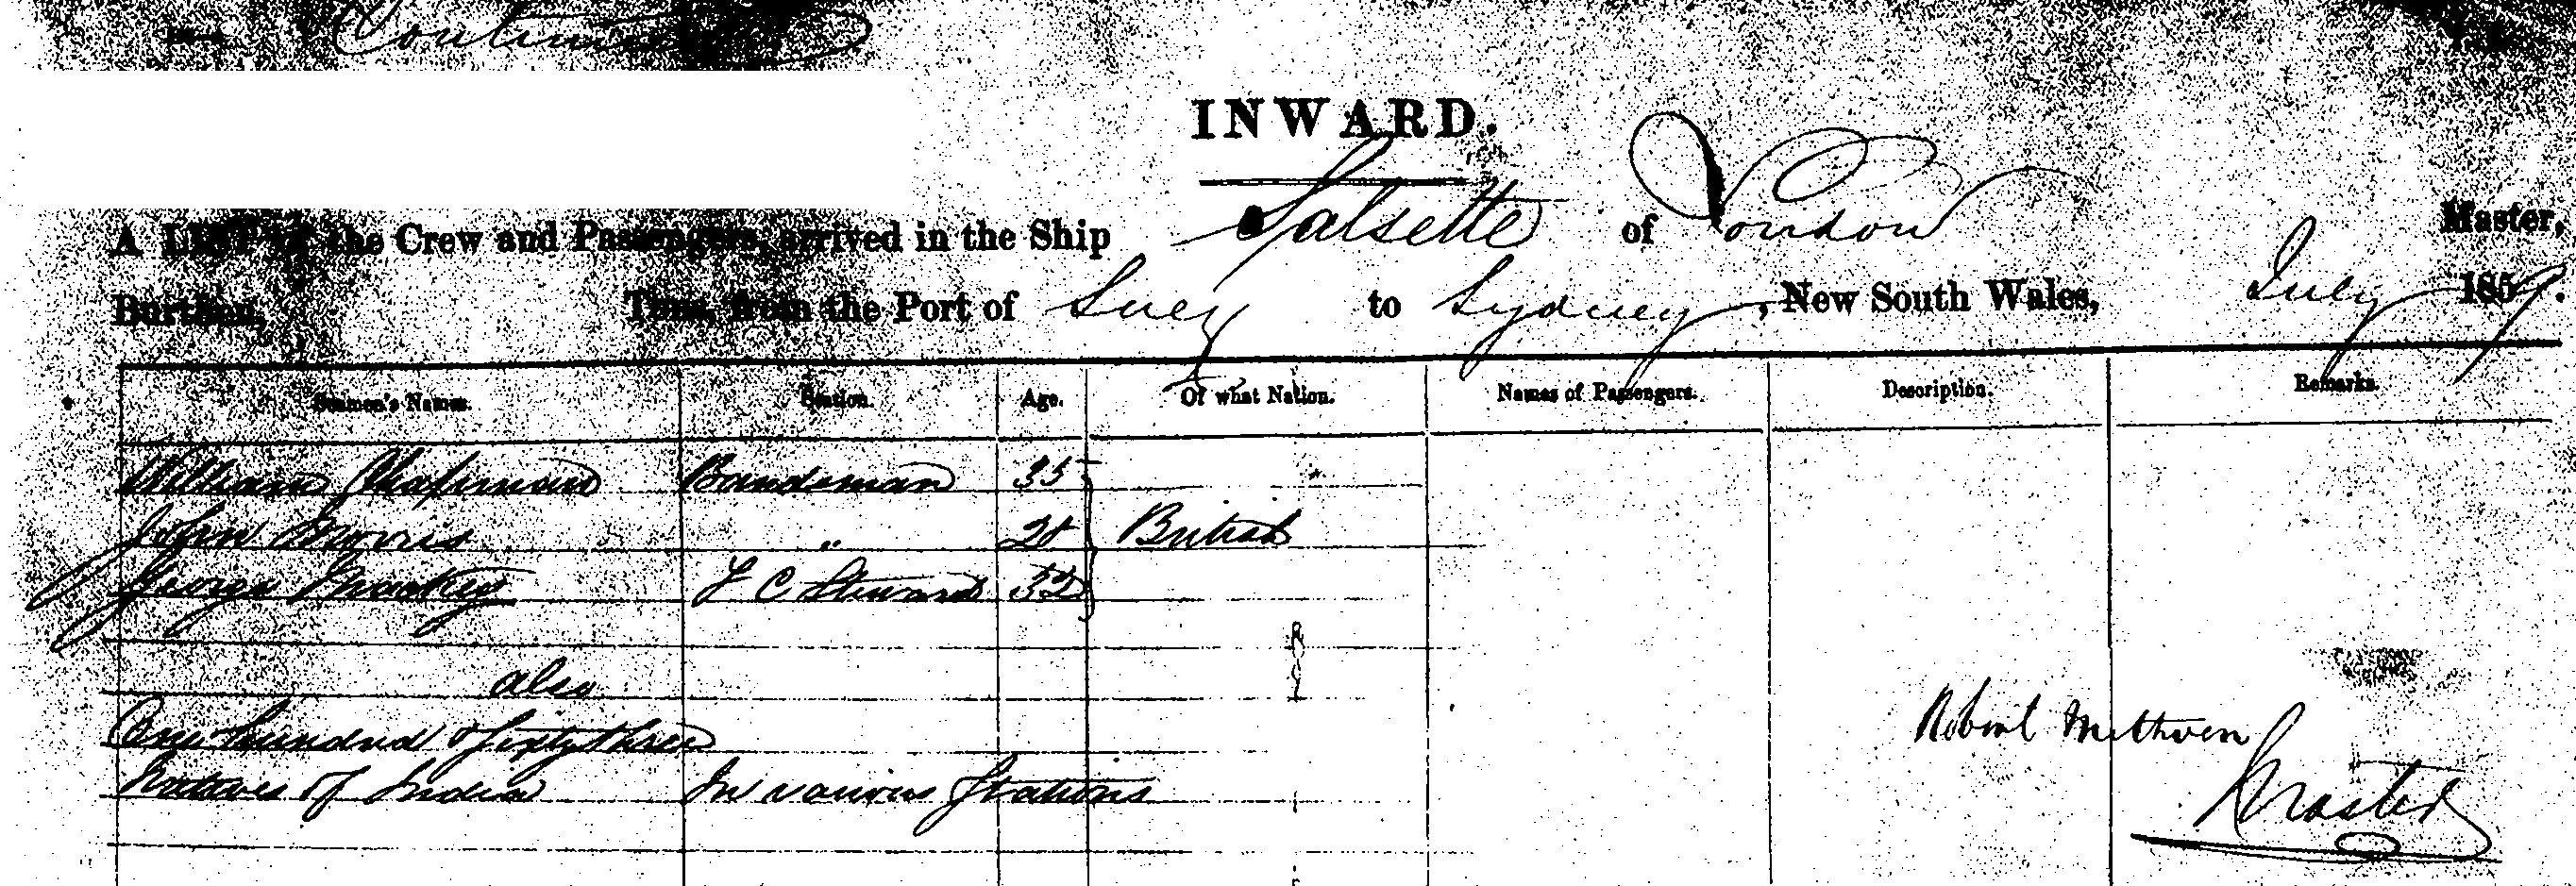 Continued
INWARD.
A LIST of the Crew and Passengers, arrived in the Ship Salsette of London Master,
Burthen, Tons, from the Port of Suez to Sydney, New South Wales, July 1859.
Seamen's Names. Station. Age. Of what Nation. Names of Passengers. Description. Remarks.
William Chapman Bandsman 35
John Morris " 28 British
George Mackey F C Steward 32
also
One hundred & sixty three
Natives of India In various Stations
Robert Methven
Master